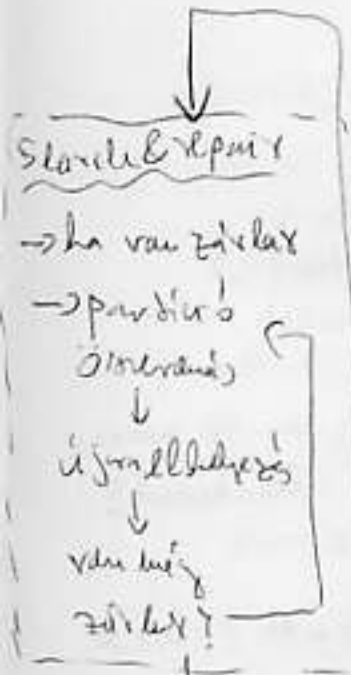 Search & repair
→ ha van zárlat
→ partíció
összevonás
↓
újraelhelyezés
↓
van még
zárlat?